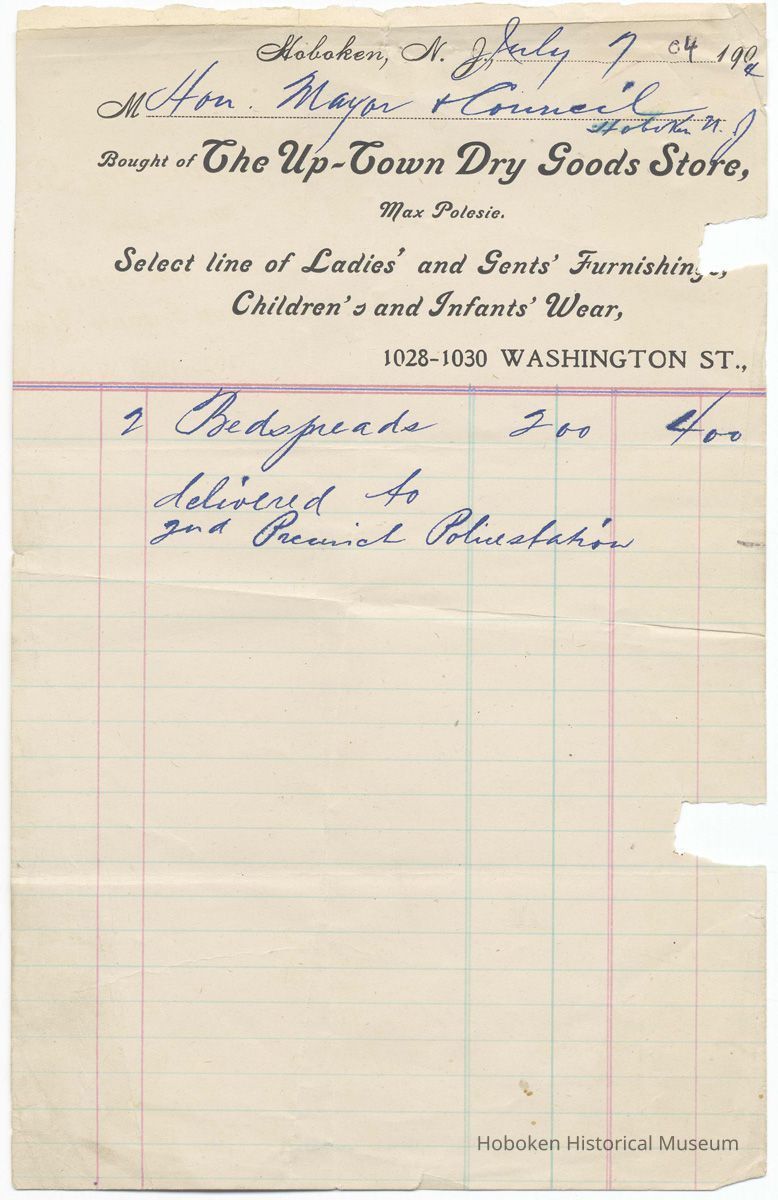 Hoboken, N. J., July 7 04 190
M Hon. Mayor & Council
Hoboken N. J
Bought of The Up-Town Dry Goods Store,
Max Polesie.
Select line of Ladies' and Gents' Furnishings,
Children's and Infants' Wear,
1028-1030 WASHINGTON ST.,
2 Bedspreads 2 00 4 00
delivered to
2nd Precinct Policestation
Hoboken Historical Museum